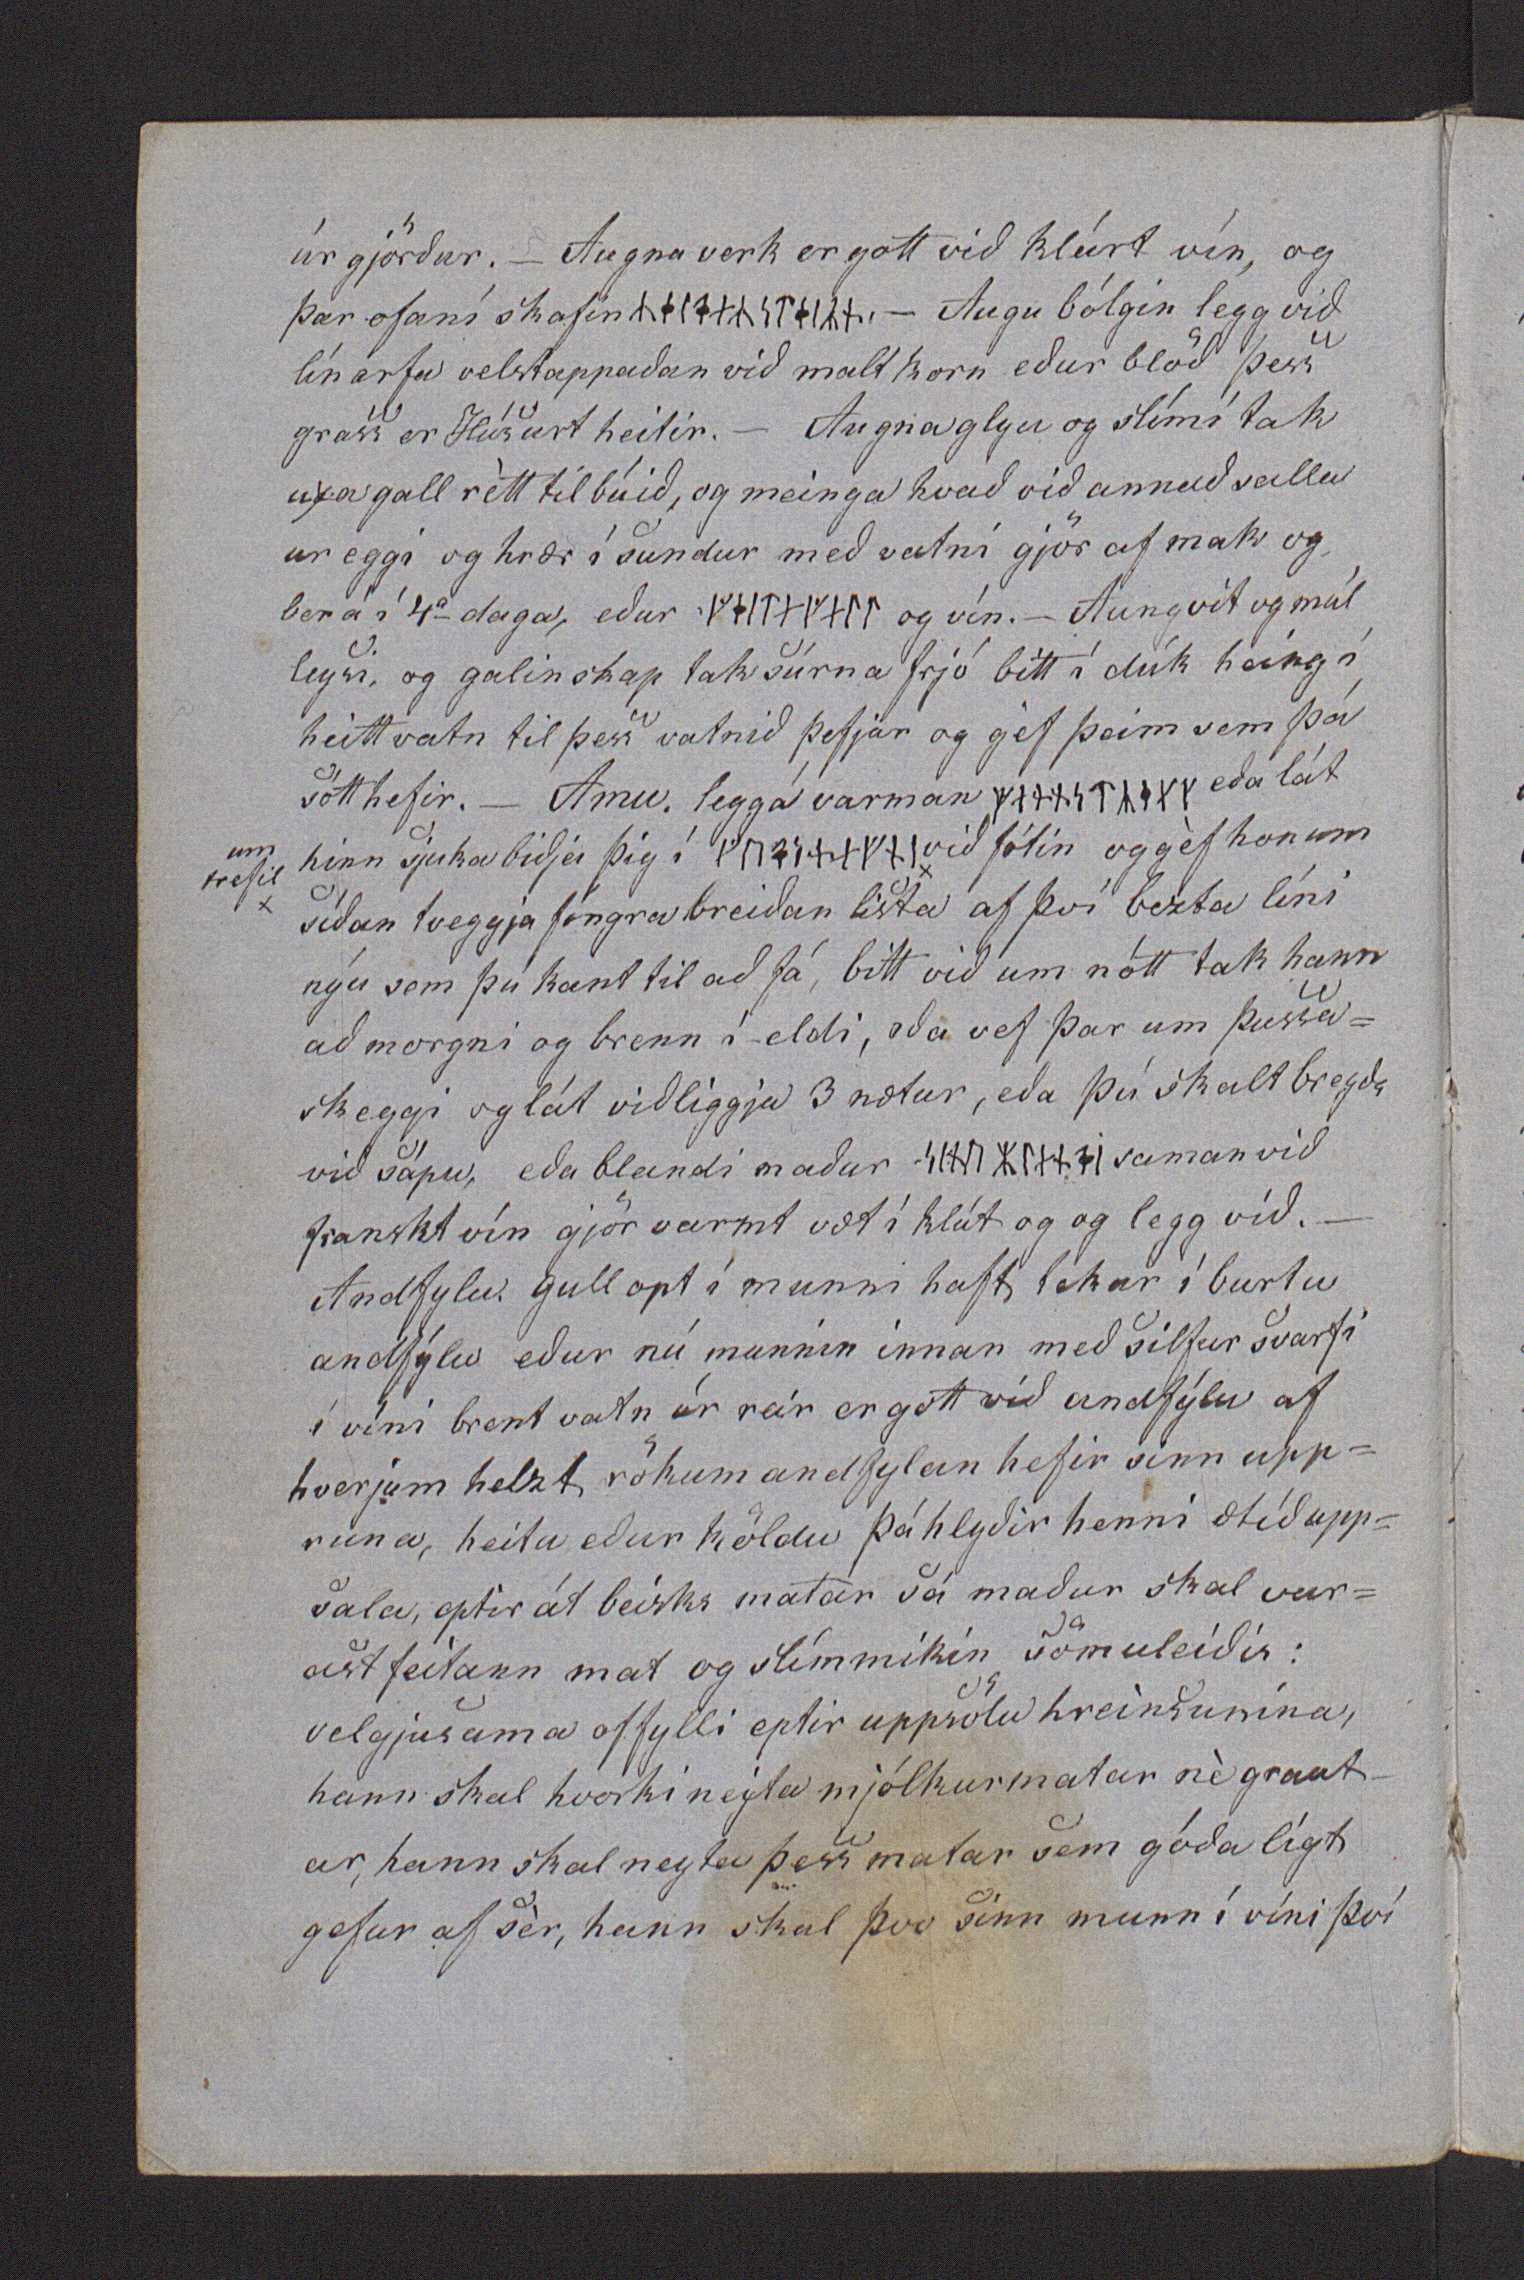 úr gjörður. — Augnaverk er gott við klárt vín, og
þar ofaní skafin — Augu bólgin legg við
línarfa velstappaðan við maltkorn eður blöð þess
grass er Húsurt heitir. — Augnaglyu og slími tak
uxagall rètt tilbúið, og meinga hvað við annað salla
ur eggi og hrær í sundur með vatni gjör af mak og
ber á í 4a daga, eður og vín. — Aungvit og mál
leysi, og galinskap tak súrna frjó bitt í dúk heing í
heitt vatn til þess vatnið þefjar og gef þeim sem þá
sótt hefir. — Amu. legg á varman eða lát
hinn sjuka biðja þig í við fótin og gèf honum
um
trefil
x
síðan tveggja fingra breiðan lista af því bezta líni
nýu sem þú kant til að fá, bitt við um nótt tak hann
að morgni og brenn í eldi, eða vef þar um þussa=
skeggi og lát viðliggja 3 nætur, eða þú skalt bregða
við sápu, eða blandi maður saman við
franskt vín gjör varmt væt í klút og og legg við. —
Andfylu. gull opt í munni haft, tekur í burtu
andfýlu eður nú munnin innan með silfur svarfi
í víni brent vatn úr reir er gott við andfýlu af
hverjum helzt rökum andfylan hefir sinn upp=
runa, heitu eður köldu þá hlyðir henni ætíð upp=
sala, eptir át beisks matar sá maður skal var=
ast feitann mat og slímmikin sömuleiðis:
velgjusama offylli eptir uppsölu hreinsunina,
hann skal hvorki neyta mjólkurmatar nè graut-
ar, hann skal neyta þess matar sem góða ligt
gefur af sèr, hann skal þvo sinn munn í víni því